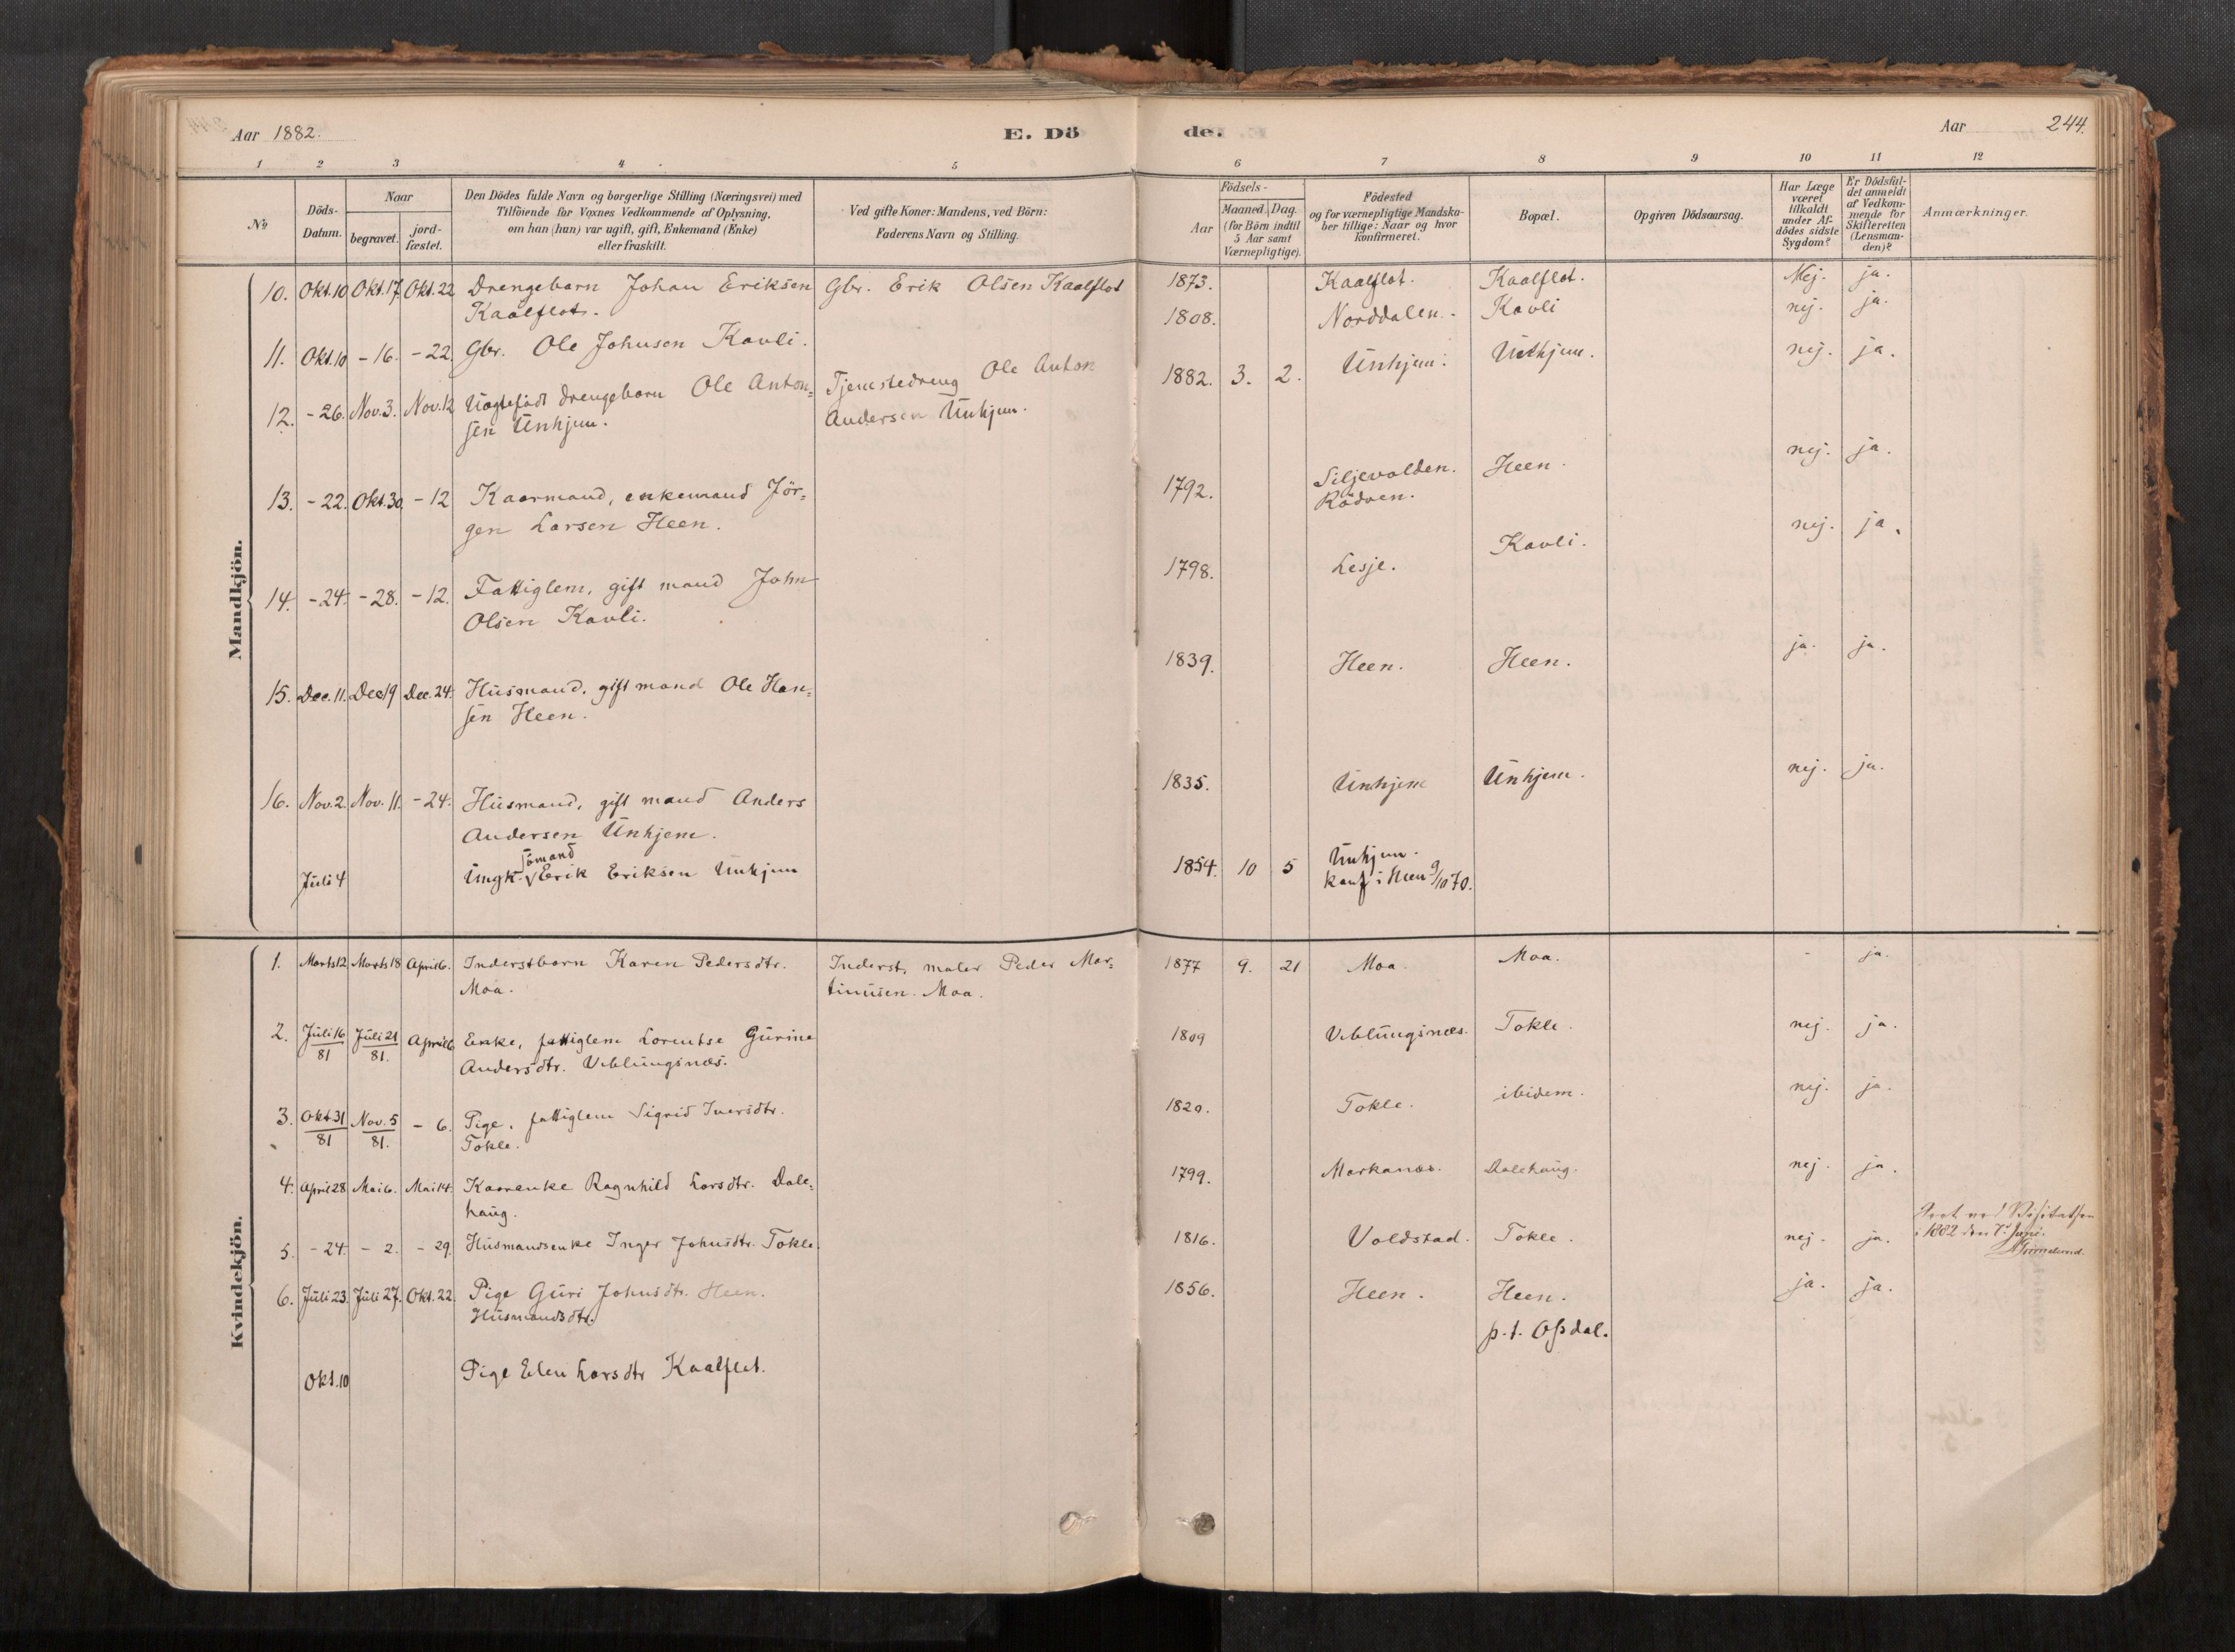 Aar 1882.
E. Dö
de.
Aar
244.
1 2 3 4 5 6 7 8 9 10 11 12
No
Döds-
Datum.
Naar
begravet.
jord-
fæstet.
Den Dödes fulde Navn og borgerlige Stilling (Næringsvei) med
Tilföiende for Voxnes Vedkommende af Oplysning,
om han (hun) var ugift, gift, Enkemand (Enke)
eller fraskilt.
Ved gifte Koner: Mandens, ved Börn:
Faderens Navn og Stilling.
Födsels-
Aar
Maaned. Dag.
(for Börn indtil
5 Aar samt
Værnepligtige).
Födested
og for værnepligtige Mandska-
ber tillige: Naar og hvor
konfirmeret.
Bopæl.
Opgiven Dödsaarsag.
Har Læge
været
tilkaldt
under Af-
dödes sidste
Sygdom?
Er Dödsfal-
det anmeldt
af Vedkom-
mende for
Skifteretten
(Lensman-
den)?
Anmærkninger.
Mandkjön.
10. Okt.10 Okt.17. Okt.22 Drengebarn Johan Eriksen Gbr. Erik Olsen Kaalflot 1873. Kaalflot. Kaalflot. Nej. ja.
Kaalflot.
11. Okt.10 -16. -22. Gbr. Ole Johnsen Kavli. 1808. Norddalen. Kavli nej. ja.
12. -26. Nov.3. Nov.12 Uægtefödt drengebarn Ole Anton= Tjenestedreng Ole Anton 1882. 3. 2. Unhjem. Unhjem. nej. ja.
sen Unhjem. Andersen Unhjem.
13. -22. Okt.30. -12 Kaarmand, enkemand Jör= 1792. Siljevolden. Heen. nej. ja.
gen Larsen Heen. Rödven.
14. -24. -28. -12. Fattiglem, gift mand John 1798. Lesje. Kavli. nej. ja.
Olsen Kavli.
15. Dec.11. Dec19 Dec.24. Husmand, gift mand Ole Han= 1839. Heen. Heen. ja. ja.
sen Heen.
16. Nov.2. Nov.11. -24. Husmand, gift mand Anders 1835. Unhjem Unhjem. nej. ja.
Andersen Unhjem.
sömand
Juli 4 Ungk. Erik Eriksen Unhjem 1854. 10 5 Unhjem.
konf. i Heen 9/10 70.
Kvindekjön.
1. Marts12 Marts18 April6. Inderstbarn Karen Pedersdtr. Inderst, maler Peder Mar= 1877 9. 21 Moa. Moa. - ja.
Moa. tinusen. Moa.
2. Juli16/81 Juli21/81. April6 Enke, fattiglem Lorentse Gurine 1809 Veblungsnæs. Tokle. nej. ja.
Andersdtr. Veblungsnæs.
3. Okt31/81 Nov.5/81. - 6. Pige, fattiglem Sigrid Iversdtr. 1820. Tokle. ibidem. nej. ja.
Tokle.
4. April28 Mai6. Mai14. Kaarenke Ragnhild Larsdtr. Dale= 1799. Morkanæs. Dalehaug. nej. ja.
haug.
5. -24. - 2. - 29. Husmandsenke Inger Johnsdtr. Tokle. 1816. Voldstad. Tokle. nej. ja.
i 1882 den 7de Juni.
6. Juli23. Juli27. Okt.22. Pige Guri Johnsdtr. Heen. 1856. Heen. Heen. ja. ja.
Husmandsdtr. p.t. Opdal.
Okt.10 Pige Elen Larsdtr Kaalflot.